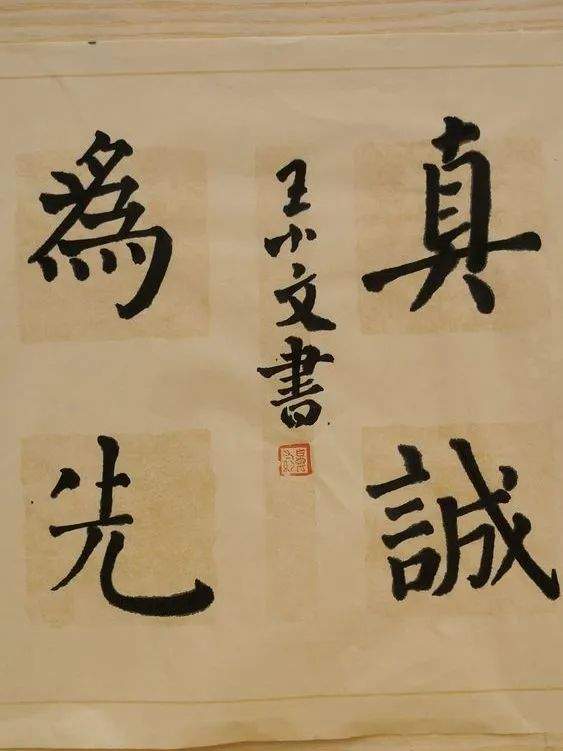 真誠
王小文書
為先